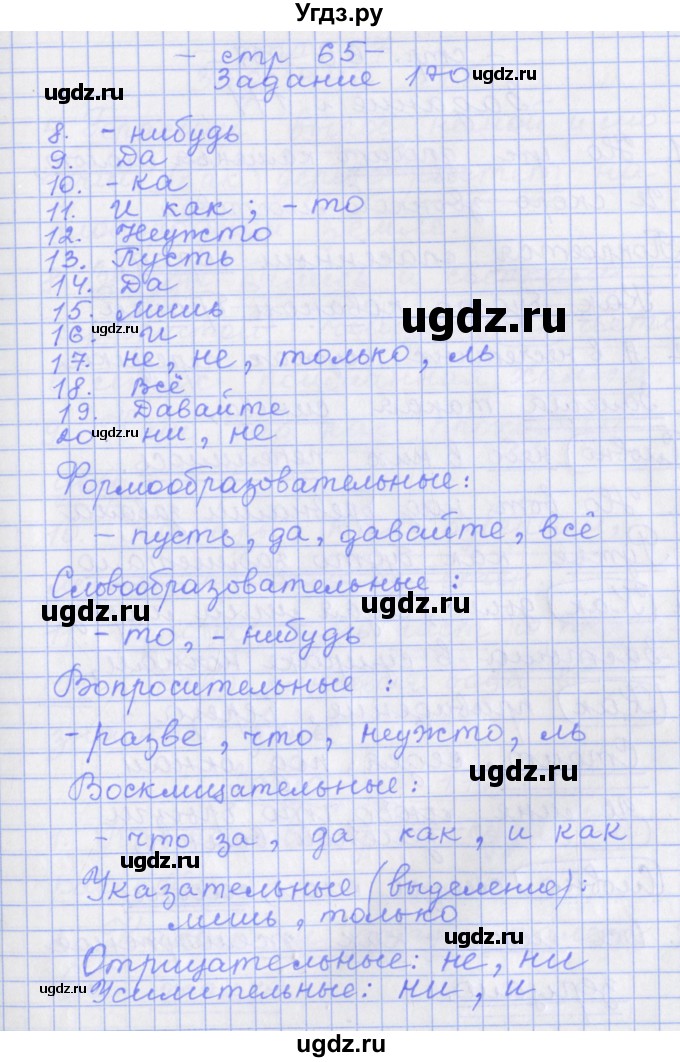 Угдз.ру
- стр 65 -
Задание 170
ugdz.ru ugdz.ru
8. - нибудь
9. Да
10. - ка
11. И как ; - то
12. Неужто
13. Пусть
14. Да
15. лишь
ugdz.ru
16. и
ugdz.ru
17. не, не, только, ль
18. всё
19. Давайте
20 ugdz.ru ни, не
Формообразовательные:
- пусть, да, давайте, всё
Словообразовательные :
ugdz.ru ugdz.ru
- то, - нибудь
Вопросительные :
- разве, что, неужто, ль
ugdz.ru
Восклицательные:
- что за, да как, и как
ugdz.ru
Указательные (выделение):
лишь, только
ugdz.ru
Отрицательные: не, ни
ugdz.ru
Усилительные: ни, и
ugdz.ru